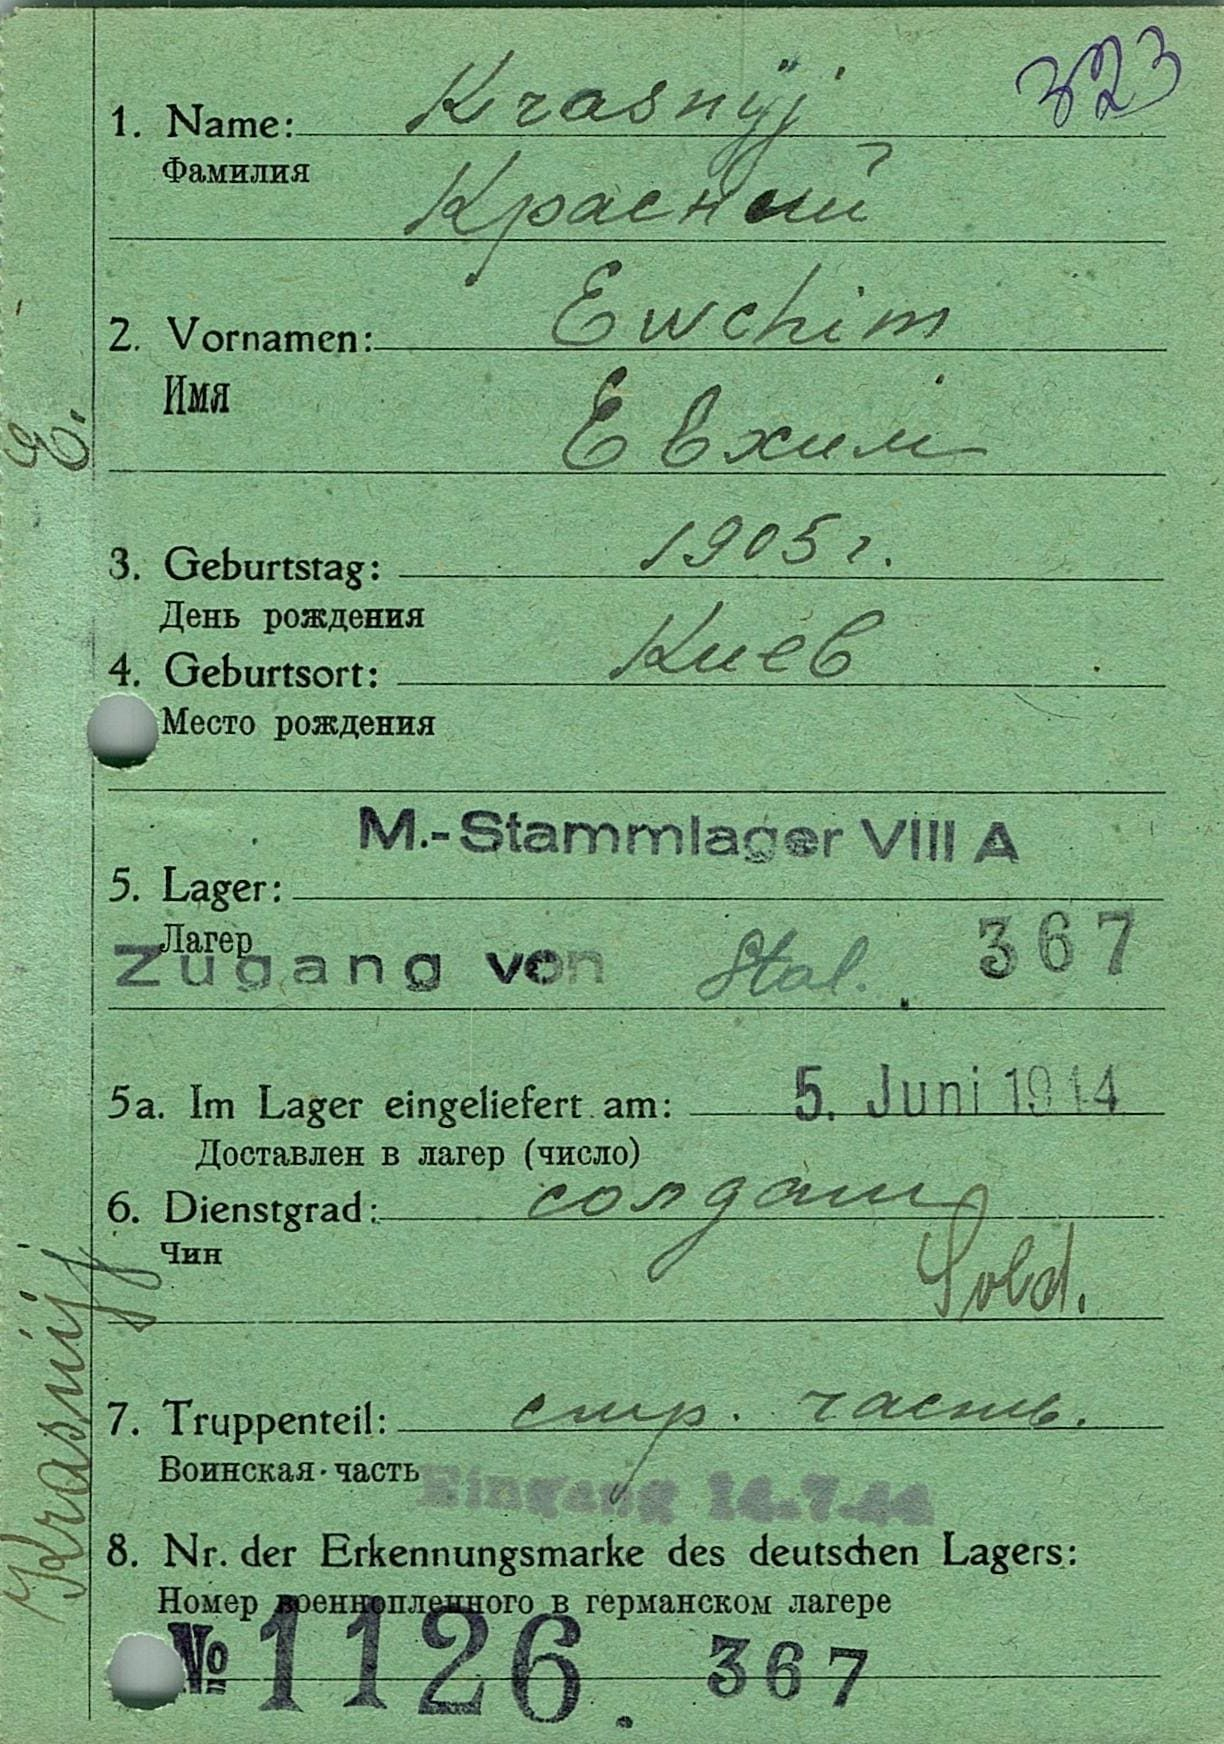 323
1. Name: Krasnÿj
Фамилия
Красный
2. Vornamen: Ewchim
Имя
Евхим
E.
3. Geburtstag: 1905 г.
День рождения
4. Geburtsort: Киев
Место рождения
M.-Stammlager VIII A
5. Lager:
Лагер
Zugang von Stal. 367
5a. Im Lager eingeliefert am: 5. Juni 1944
Доставлен в лагер (число)
6. Dienstgrad: солдат
Чин
Sold.
7. Truppenteil: стр. часть.
Воинская часть
Eingang 14.7.44
8. Nr. der Erkennungsmarke des deutschen Lagers:
Номер военнопленного в германском лагере
№ 1126. 367
Krasnÿj